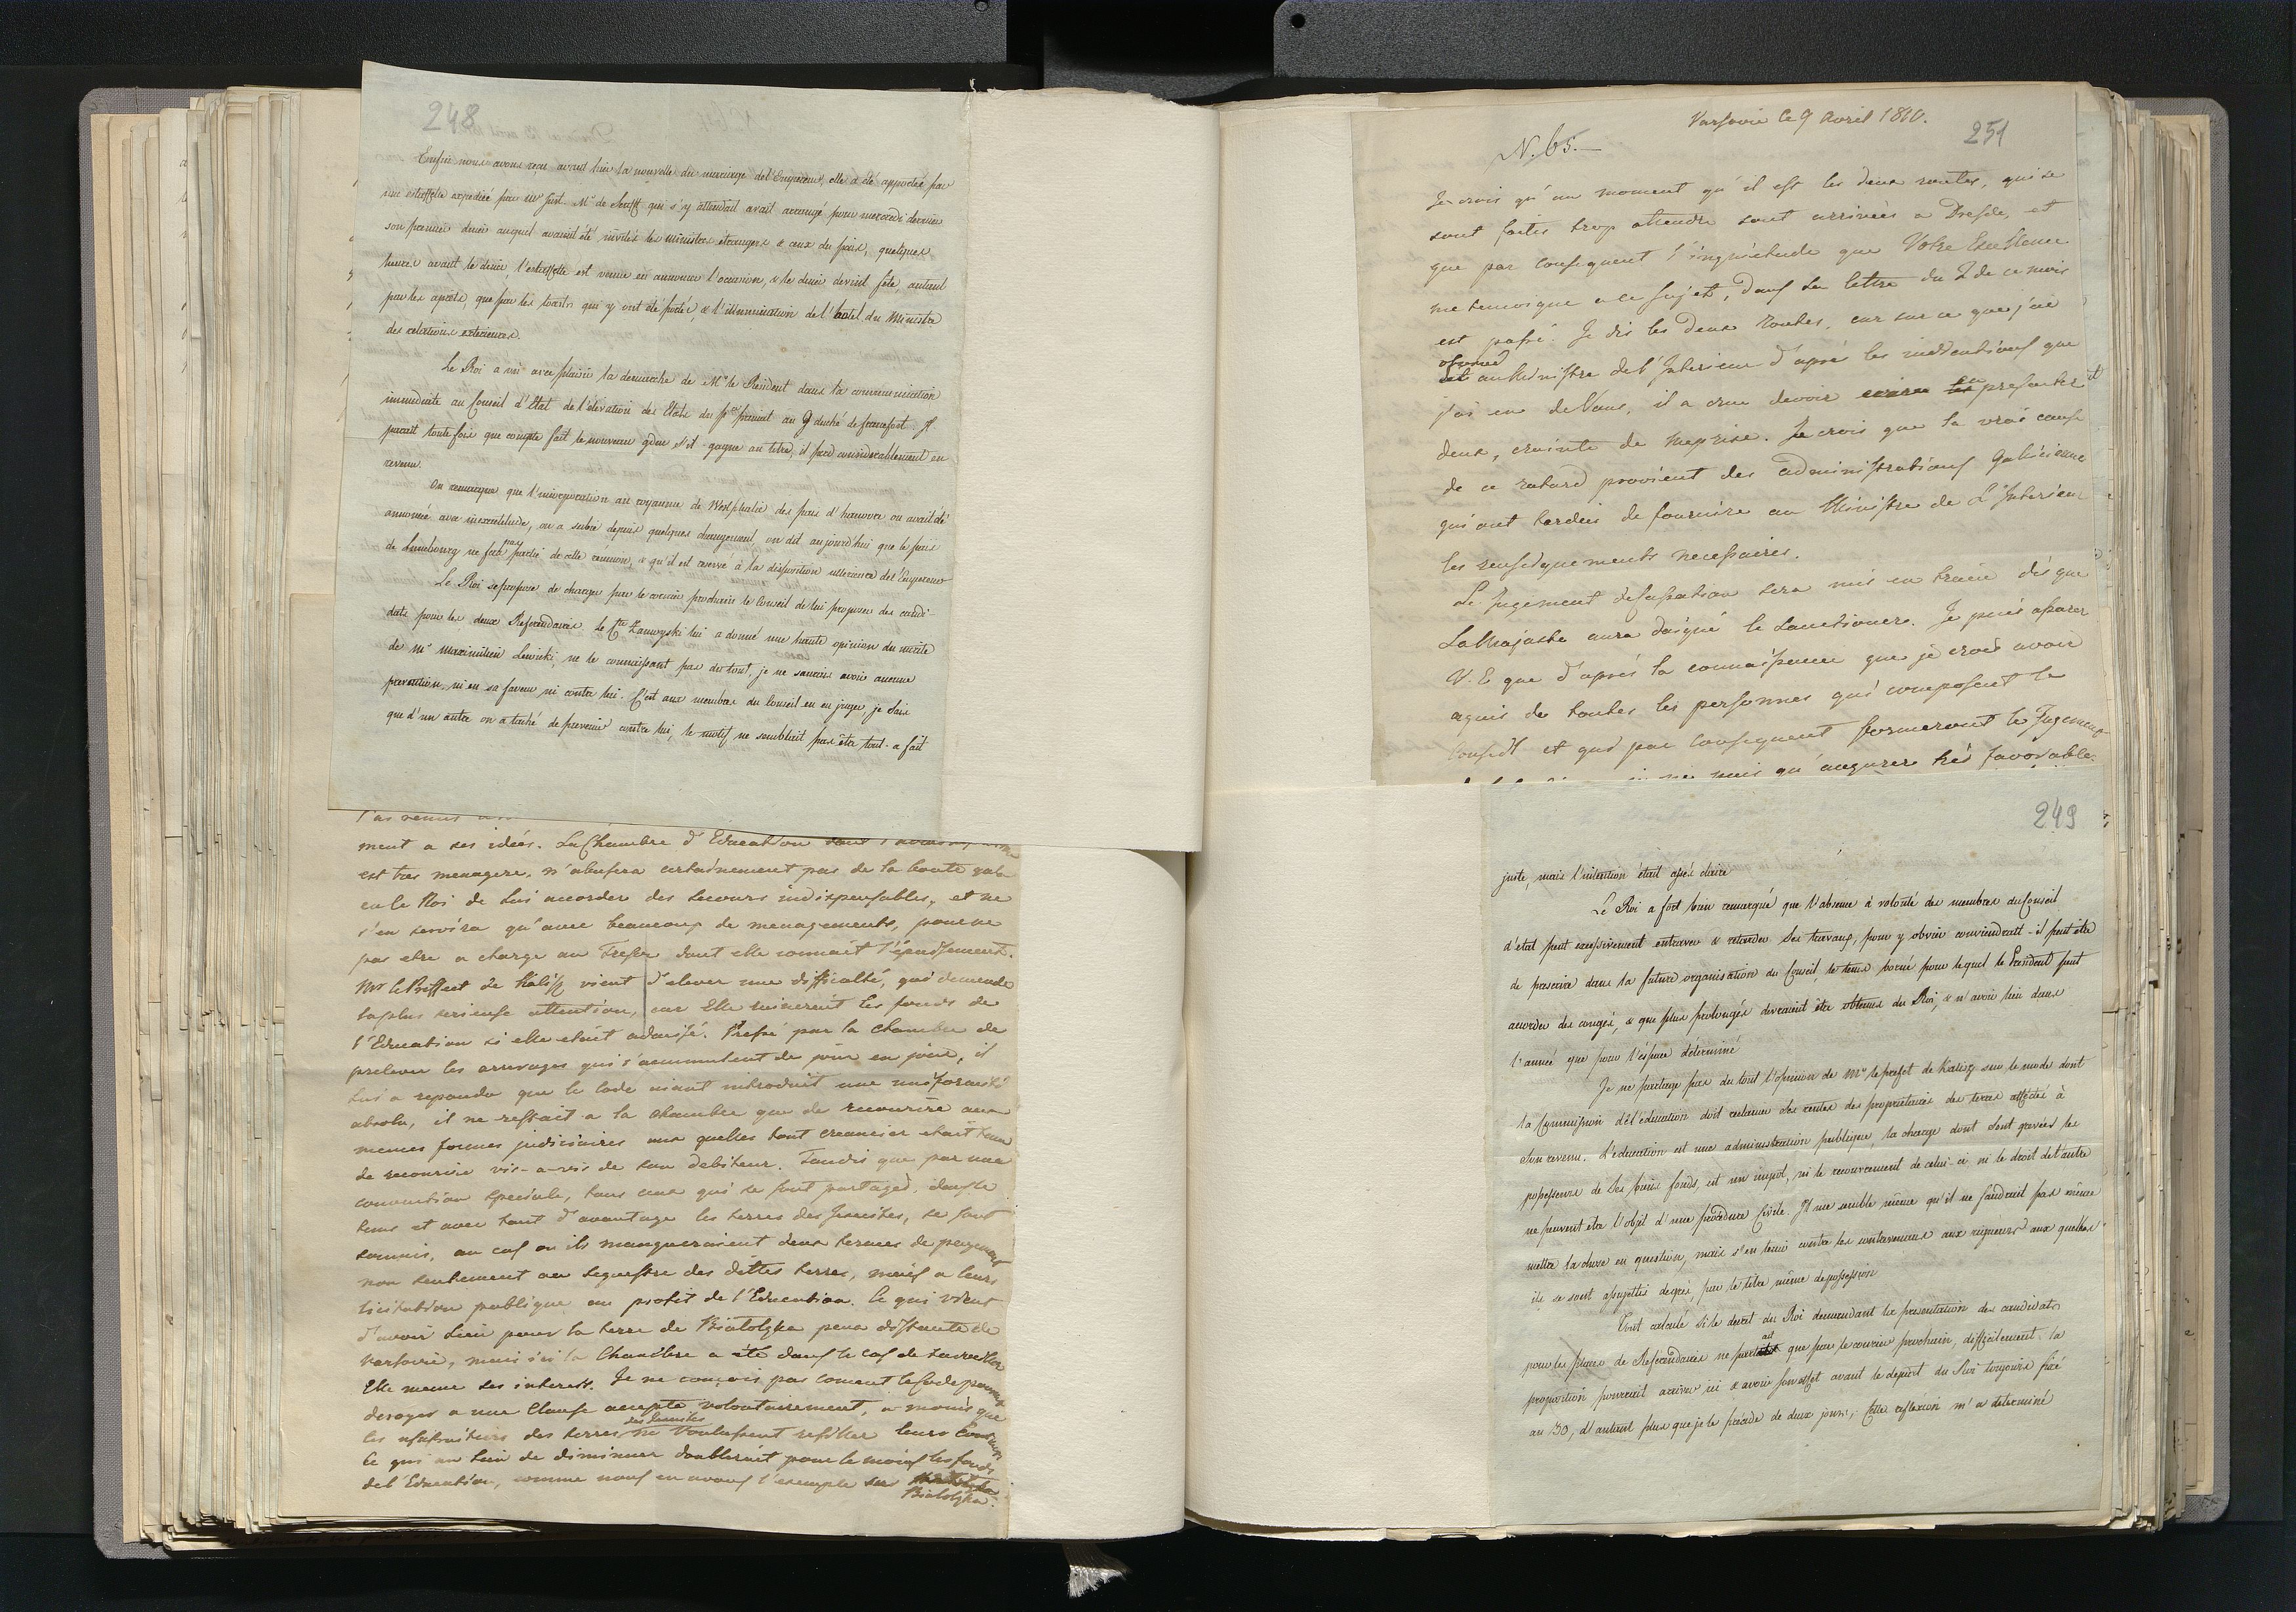 248
Enfin nous avons reçu avant hier la nouvelle du mariage de l'Empereur, elle a été apportée par
une estaffette expediée par Mr Just. Mr de Senfft qui s'y attendait avait arrangé pour mercredi dernier
son premier diner auquel avaient été invités les Ministres étrangers & ceux du païs, quelques
heures avant le diner, l'estaffette est venue en annoncer l'occasion, & le diner devint fête, autant
par les aprets, que par les toasts qui y ont été portés, & l'illumination de l'hotel du Ministre
des relations exterieures.
Le Roi a vu avec plaisir la demarche de Mr le Resident dans la communication
immediate au Conseil d'Etat de l'élevation des Etats du Pce primat au G duché de francfort. Il
parait toutefois que compte fait le nouveau gduc s'il gagne au titre, il perd considerablement en
revenu.
On remarque que l'incorporation au royaume de Westphalie des païs d'hanovre où avait été
annoncée avec inexactitude, ou a subie depuis quelques changement, on dit aujourd'hui que le païs
de Lunebourg ne fera pas partie de cette réunion, & qu'il est reservé à la disposition ulterieure de l'Empereur
Le Roi se propose de charger par le courier prochain le Conseil de lui proposer des candi-
dats pour les deux Referendaires. Le Cte Zamoyski lui a donné une haute opinion du merite
de Mr Maximilien Lewicki, ne le connaissant pas du tout, je ne saurais avoir aucune
prevention, ni en sa faveur ni contre lui. C'est aux membres du Conseil en en juger, je sais
que d'un autre on a taché de prevenir contre lui, le motif ne semblait pas être tout-a fait
ment a ses idées. La Chambre d'Education dont
est tres menagere, n'abusera certainement pas de la bonté qu'a
eu le Roi de lui accorder des secours indispensables, et ne
s'en servira qu'avec beaucoup de menagements, pour ne
pas etre a charge au Tresor dont elle connait l'épuisement.
Mr le Preffect de Kalisz vient d'elever une difficulté, qui demande
la plus serieuse attention, car Elle ruinerait les fonds de
l'Education si elle etait admise. Pressé par la Chambre de
prelever les arrerages qui s'accumulent de jour en jour, il
lui a repondu que le Code aiant introduit une uniformité
absolu, il ne restait a la chambre que de recourire aux
memes formes judiciaires aux quelles tout creancier etait tenu
de recourire vis-a-vis de son debiteur. Tandis que par une
convention speciale, tous ceux qui se sont partagés dans le
tems et avec tant d'avantage les terres des Jesuites, se sont
soumis, au cas ou ils manqueraient deux termes de payement
non seulement au sequestre des dittes terres, mais a leurs
licitation publique au profit de l'Education. Ce qui vient
d'avoir lieu pour la terre de Bialolyka peu distante de
Varsovie, mais ici la Chambre a été dans le cas de
Elle meme ses interets. Je ne conçois pas coment le Code
deroger a une Clause accepte volontairement, a moins que
les usufruitiers des terres des Jesuites ne voulussent resilier leurs
Ce qui au lieu de diminuer doublerait pour le moins les fonds
de l'Education, comme nous en avons l'exemple sur
Bialolyka.
Varsovie le 9 Avril 1810.
251
N. 65.
Je crois qu'au moment qu'il est les deux routes, qui se
sont faites trop attendre sont arrivées a Dresde, et
que par consequent l'inquietude que Votre Excellence
me temoigne a ce sujet, dans sa lettre du 2 de ce mois
est passé. Je dis les deux routes, car sur ce que j'ai
observé
au Ministre de l'Interieur d'aprés les indications que
j'ai eu de Vous, il a crue devoir en presenter
deux, crainte de meprise. Je crois que la vrai cause
de ce retard provient des administrations Galicienne
qui ont tardés de fournire au Ministre de l'Interieur
les renseignements necessaires.
Le Jugement de Cassation sera mis en train dès que
Sa Majesté aura daigné le sanctionere. Je puis assurer
V. E que d'aprés la connaissance que je crois avoir
aquis de toutes les personnes qui composent le
Conseil et qui par consequent formeront le Jugement
puis qu'augurere très favorable.
249
juste, mais l'intention était assés claire
Le Roi a fort bien remarqué que l'absence à volonté des membres du Conseil
d'etat peut excessivement entraver & retarder ses travaux, pour y obvier conviendrait-il peut être
de prescrire dans la future organisation du Conseil, le tems borné pour lequel le President peut
accorder des congés, & que plus prolongés devraient être obtenus du Roi, & n'avoir lieu dans
l'année que pour l'espace determiné
Je ne partage pas du tout l'opinion de Mr le prefet de Kalisz sur le mode dont
la Commission de l'éducation doit reclamer les rentes des proprietaires des terres affectés à
son revenu. L'education est une administration publique, la charge dont sont gravées les
possesseurs de ses biens fonds, est un impot, ni le recouvrement de celui-ci ni le droit de l'autre
ne peuvent etre l'objet d'une procedure Civile. Il me semble même qu'il ne faudrait pas même
mettre la chose en question, mais s'en tenir contre les contrevenans aux rigueurs aux quelles
ils se sont assujettis degrés, par le titre même de possession
Tout calculé si le decret du Roi demandant la presentation des candidats
pour les places de Referendaires ne part que par le courier prochain, difficilement la
proposition pourrait arriver ici & avoir son effet avant le depart du Roi toujours fixé
au 30, d'autant plus que je le précede de deux jours; Cette reflexion m'a determiné